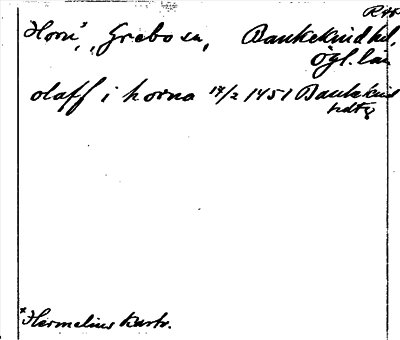 Horn, ×, Grebo sn, Bankekind hd,
Ögl. län
olaff i horna 14/2 1451 Bankekind
hdtg
×Hermelins karta.